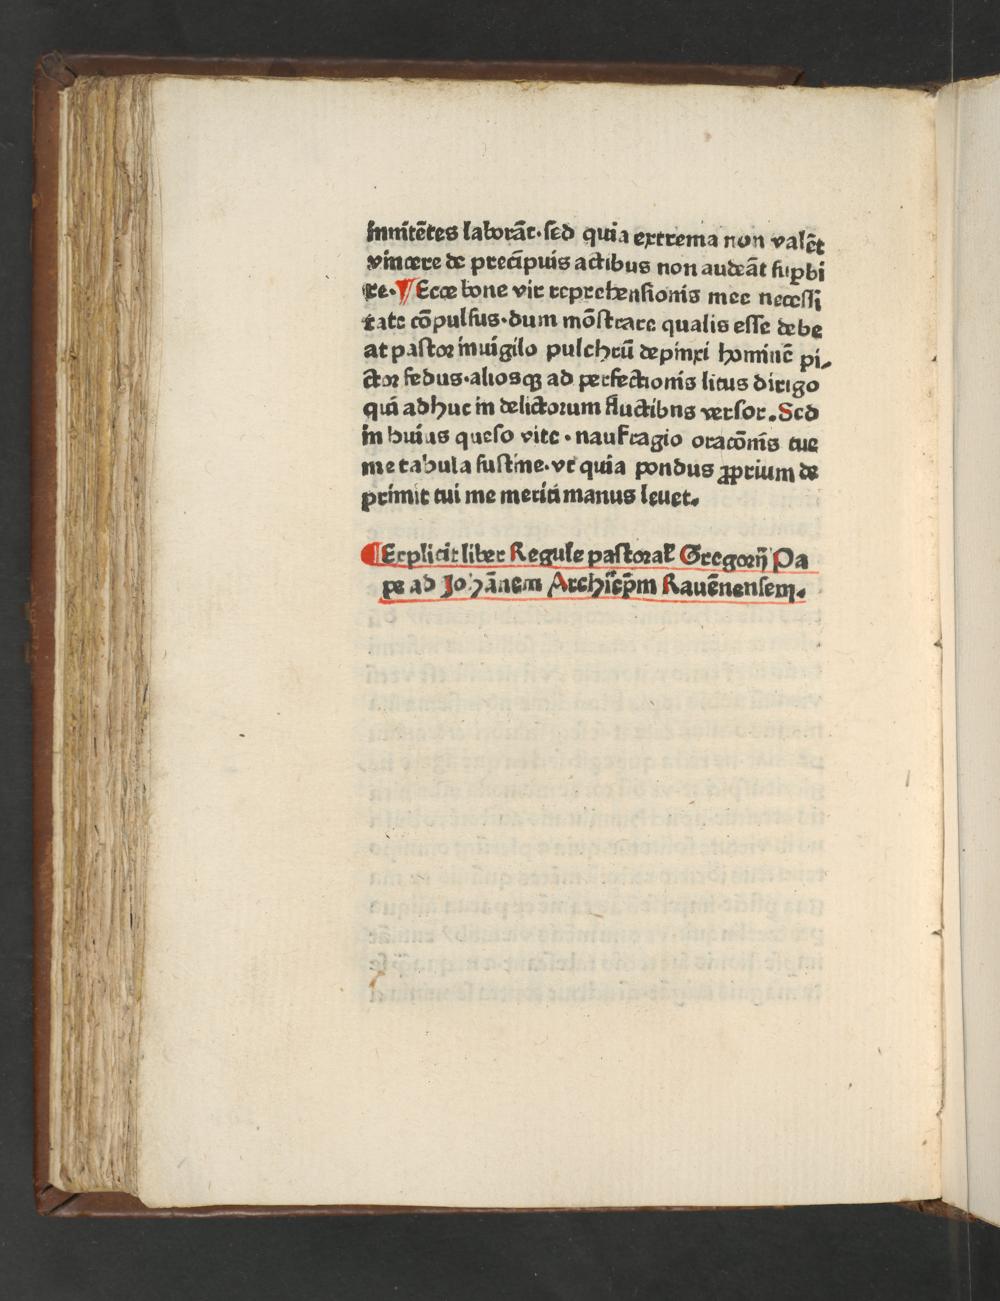 innitẽtes laborãt·sed quia extrema non valẽt
vincere de precipuis actibus non audeãt supbi
re·¶Ecce bone vir reprehensionis mee necessi
tate cõpulsus·dum mõstrare qualis esse debe
at pastor inuigilo pulchrũ depinxi hominẽ pi⸗
ctor fedus·aliosqꝫ ad perfectionis litus dirigo
qui adhuc in delictorum fluctibus versor.Sed
in huius queso vite·naufragio oracõnis tue
me tabula sustine·vt quia pondus ꝓprium de
primit tui me meriti manus leuet.
¶Explicit liber Regule pastoraɫ Gregorij Pa
pe ad Johãnem Archiep̃m Rauẽnensem.